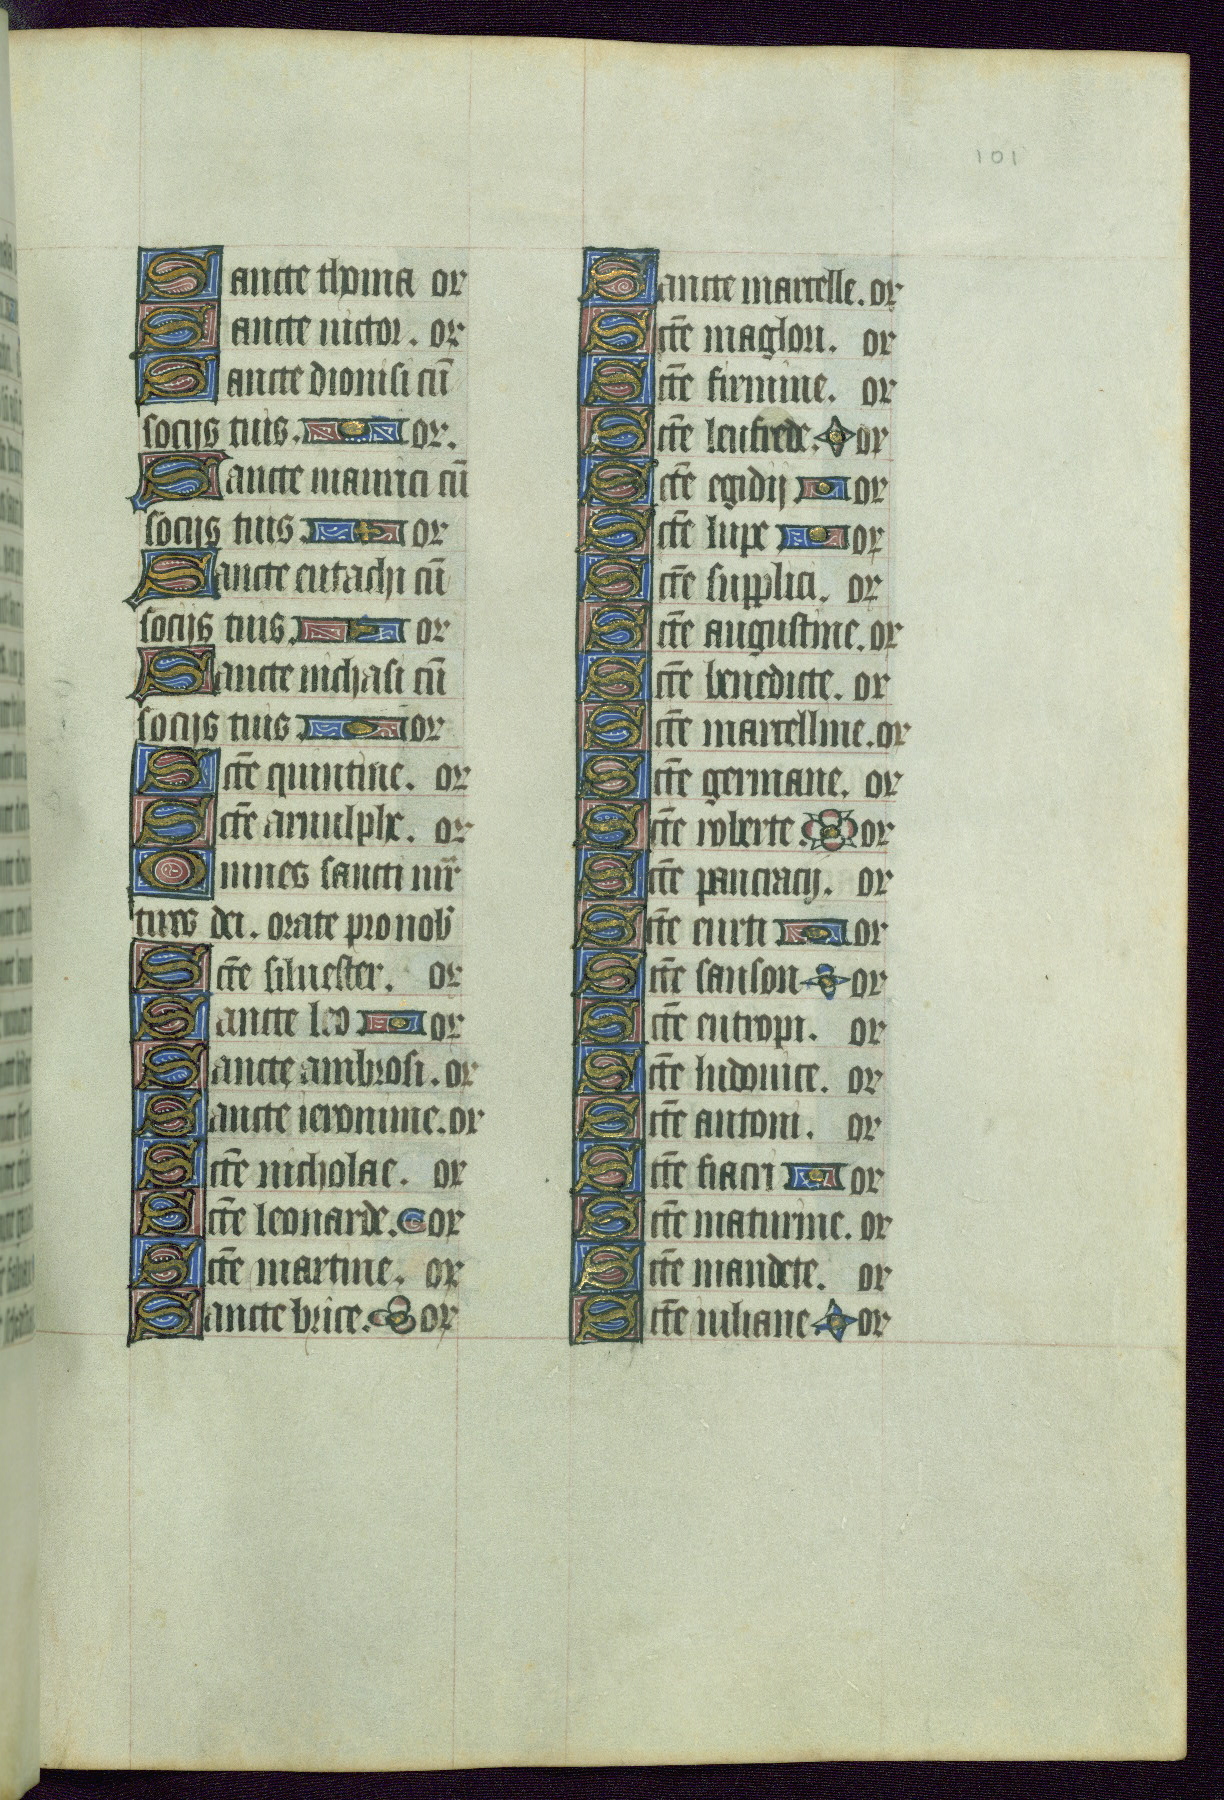 101
Sancte thoma or
Sancte victor. or
Sancte dionisi cū
socijs tuis. or.
Sancte maurici cū
socijs tuis or
Sancte eustachi cū
socijs tuis. or
Sancte nichasi cū
socijs tuis or
Sctē quintine. or
Sctē arnulphe. or
Omnes sancti mr̄
tires dei. orate pro nob̄
Sctē siluester. or
Sancte leo or
Sancte ambrosi. or
Sancte ieronime. or
Sctē nicholae. or
Sctē leonarde. or
Sctē martine. or
Sancte brice. or
Sancte marcelle. or
Sctē maglori. or
Sctē firmine. or
Sctē leufrede. or
Sctē egidij or
Sctē lupe or
Sctē supplici. or
Sctē augustine. or
Sctē benedicte. or
Sctē marcelline. or
Sctē germane. or
Sctē roberte. or
Sctē pancracij. or
Sctē eurti or
Sctē sanson or
Sctē eutropi. or
Sctē ludouice. or
Sctē antoni. or
Sctē fiacri or
Sctē maturine. or
Sctē mandete. or
Sctē iuliane. or